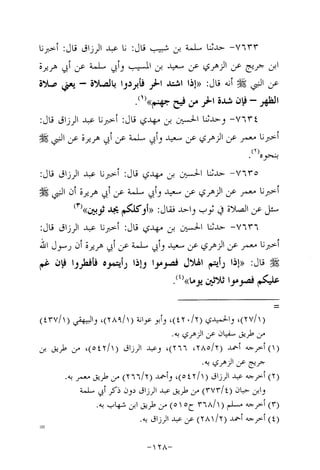 ٧٦٣٣- حدثنا سلمة بن شبيب قال: نا عبد الرزاق قال: أخبرنا
ابن جريج عن الزهري عن سعيد بن المسيب وأبي سلمة عن أبي هريرة
عن النبي ﷺ أنه قال: «إذا اشتد الحر فأبردوا بالصلاة – يعني صلاة
الظهر – فإن شدة الحر من فيح جهنم»(١).
٧٦٣٤- وحدثنا الحسين بن مهدي قال: أخبرنا عبد الرزاق قال:
أخبرنا معمر عن الزهري عن سعيد وأبي سلمة عن أبي هريرة عن النبي ﷺ
بنحوه(٢).
٧٦٣٥- حدثنا الحسين بن مهدي قال: أخبرنا عبد الرزاق قال:
أخبرنا معمر عن الزهري عن سعيد وأبي سلمة عن أبي هريرة أن النبي ﷺ
سئل عن الصلاة في ثوب واحد فقال: «أوكلكم يجد ثوبين»(٣)
٧٦٣٦- حدثنا الحسين بن مهدي قال: أخبرنا عبد الرزاق قال:
أخبرنا معمر عن الزهري عن سعيد وأبي سلمة عن أبي هريرة أن رسول الله
ﷺ قال: «إذا رأيتم الهلال فصوموا وإذا رأيتموه فأفطروا فإن غم
عليكم فصوموا ثلاثين يوما»(٤).
=
(٢٧/١)، والحميدي (٤٢٠/٢)، وأبو عوانة (٢٨٩/١)، والبيهقي (٤٣٧/١)
من طريق سفيان عن الزهري به.
(١) أخرجه أحمد (٢٨٥/٢، ٢٦٦)، وعبد الرزاق (٥٤٢/١)، من طريق بن
جريج عن الزهري به.
(٢) أخرجه عبد الرزاق (٥٤٢/١)، وأحمد (٢٦٦/٢) من طريق معمر به.
وابن حبان (٣٧٣/٤) من طريق عبد الرزاق دون ذكر أبي سلمة
(٣) أخرجه مسلم (٣٦٨/١ ح٥١٥) من طريق ابن شهاب به.
(٤) أخرجه أحمد (٢٨١/٢) عن عبد الرزاق به.
-١٢٨-